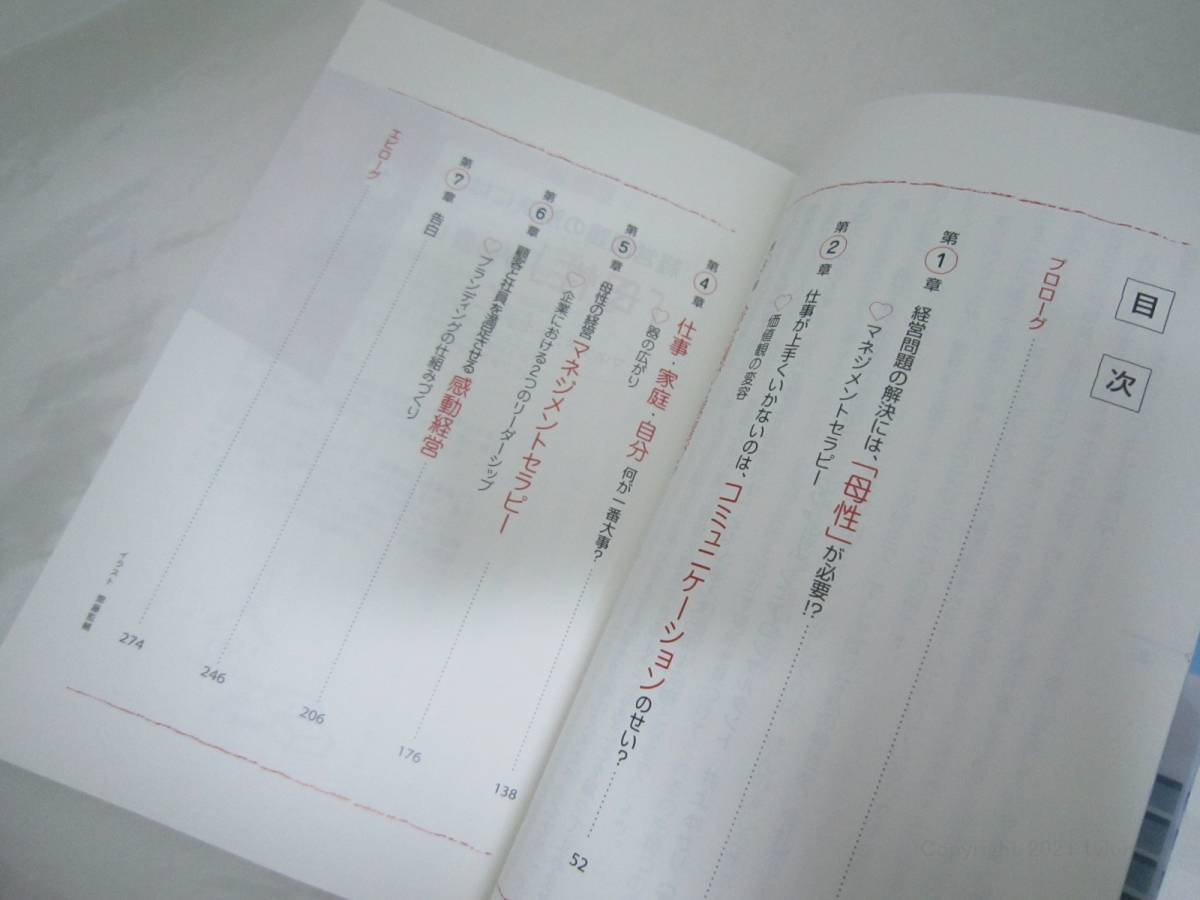 目次
プロローグ
第1章 経営問題の解決には、「母性」が必要!?
♡マネジメントセラピー
第2章 仕事が上手くいかないのは、コミュニケーションのせい? 52
♡価値観の変容
第4章 仕事・家庭・自分 何が一番大事? 138
♡器の広がり
第5章 母性の経営 マネジメントセラピー 176
♡企業における2つのリーダーシップ
第6章 顧客と社員を満足させる 感動経営 206
♡ブランディングの仕組みづくり
第7章 告白 246
エピローグ 274
イラスト
Copyright 2021